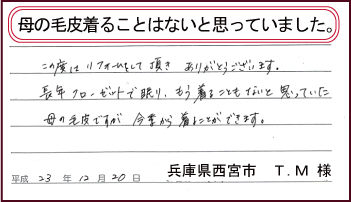 母の毛皮着ることはないと思っていました。
この度はリフォームして頂き ありがとうございます。
長年クローゼットで眠り、もう着ることもないと思っていた
母の毛皮ですが 今季から着ることができます。
平成 23 年 12 月 20 日
兵庫県西宮市 T.M 様